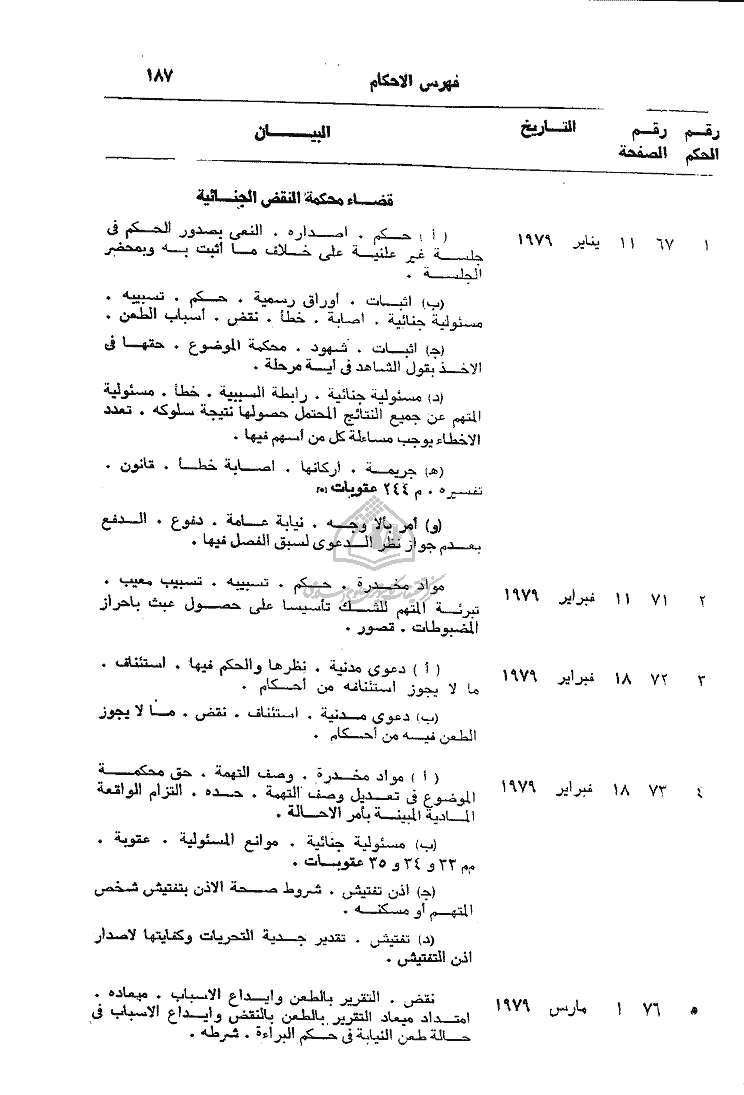 فهرس الاحكام ١٨٧
رقم رقم التاريخ البيان
الحكم الصفحة
قضاء محكمة النقض الجنائية
١ ٦٧ ١١ يناير ١٩٧٩ ( أ ) حكم . اصداره . النعى بصدور الحكم فى
جلسة غير علنية على خلاف ما أثبت به وبمحضر
الجلسة .
(ب) اثبات . أوراق رسمية . حكم . تسبيبه .
مسئولية جنائية . اصابة . خطأ . نقض . أسباب الطعن .
(ج) اثبات . شهود . محكمة الموضوع . حقها فى
الاخذ بقول الشاهد فى أية مرحلة .
(د) مسئولية جنائية . رابطة السببية . خطأ . مسئولية
المتهم عن جميع النتائج المحتمل حصولها نتيجة سلوكه . تعدد
الاخطاء يوجب مساءلة كل من أسهم فيها .
(ه) جريمة . أركانها . اصابة خطأ . قانون .
تفسيره . م ٢٤٤ عقوبات
(و) أمر بألا وجه . نيابة عامة . دفوع . الدفع
بعدم جواز نظر الدعوى لسبق الفصل فيها .
٢ ٧١ ١١ فبراير ١٩٧٩ مواد مخدرة . حكم . تسبيبه . تسبيب معيب .
تبرئة المتهم للشك تأسيسا على حصول عبث باحراز
المضبوطات . قصور .
٣ ٧٢ ١٨ فبراير ١٩٧٩ ( أ ) دعوى مدنية . نظرها والحكم فيها . استئناف .
ما لا يجوز استئنافه من أحكام .
(ب) دعوى مدنية . استئناف . نقض . ما لا يجوز
الطعن فيه من أحكام .
٤ ٧٣ ١٨ فبراير ١٩٧٩ ( أ ) مواد مخدرة . وصف التهمة . حق محكمة
الموضوع فى تعديل وصف التهمة . حده . التزام الواقعة
المادية المبينة بأمر الاحالة .
(ب) مسئولية جنائية . موانع المسئولية . عقوبة .
مم ٢٣ و ٢٤ و ٣٥ عقوبات .
(ج) اذن تفتيش . شروط صحة الاذن بتفتيش شخص
المتهم أو مسكنه .
(د) تفتيش . تقدير جدية التحريات وكفايتها لاصدار
اذن التفتيش .
٥ ٧٦ ١ مارس ١٩٧٩ نقض . التقرير بالطعن وايداع الاسباب . ميعاده .
امتداد ميعاد التقرير بالطعن بالنقض وايداع الاسباب فى
حالة طعن النيابة فى حكم البراءة . شرطه .